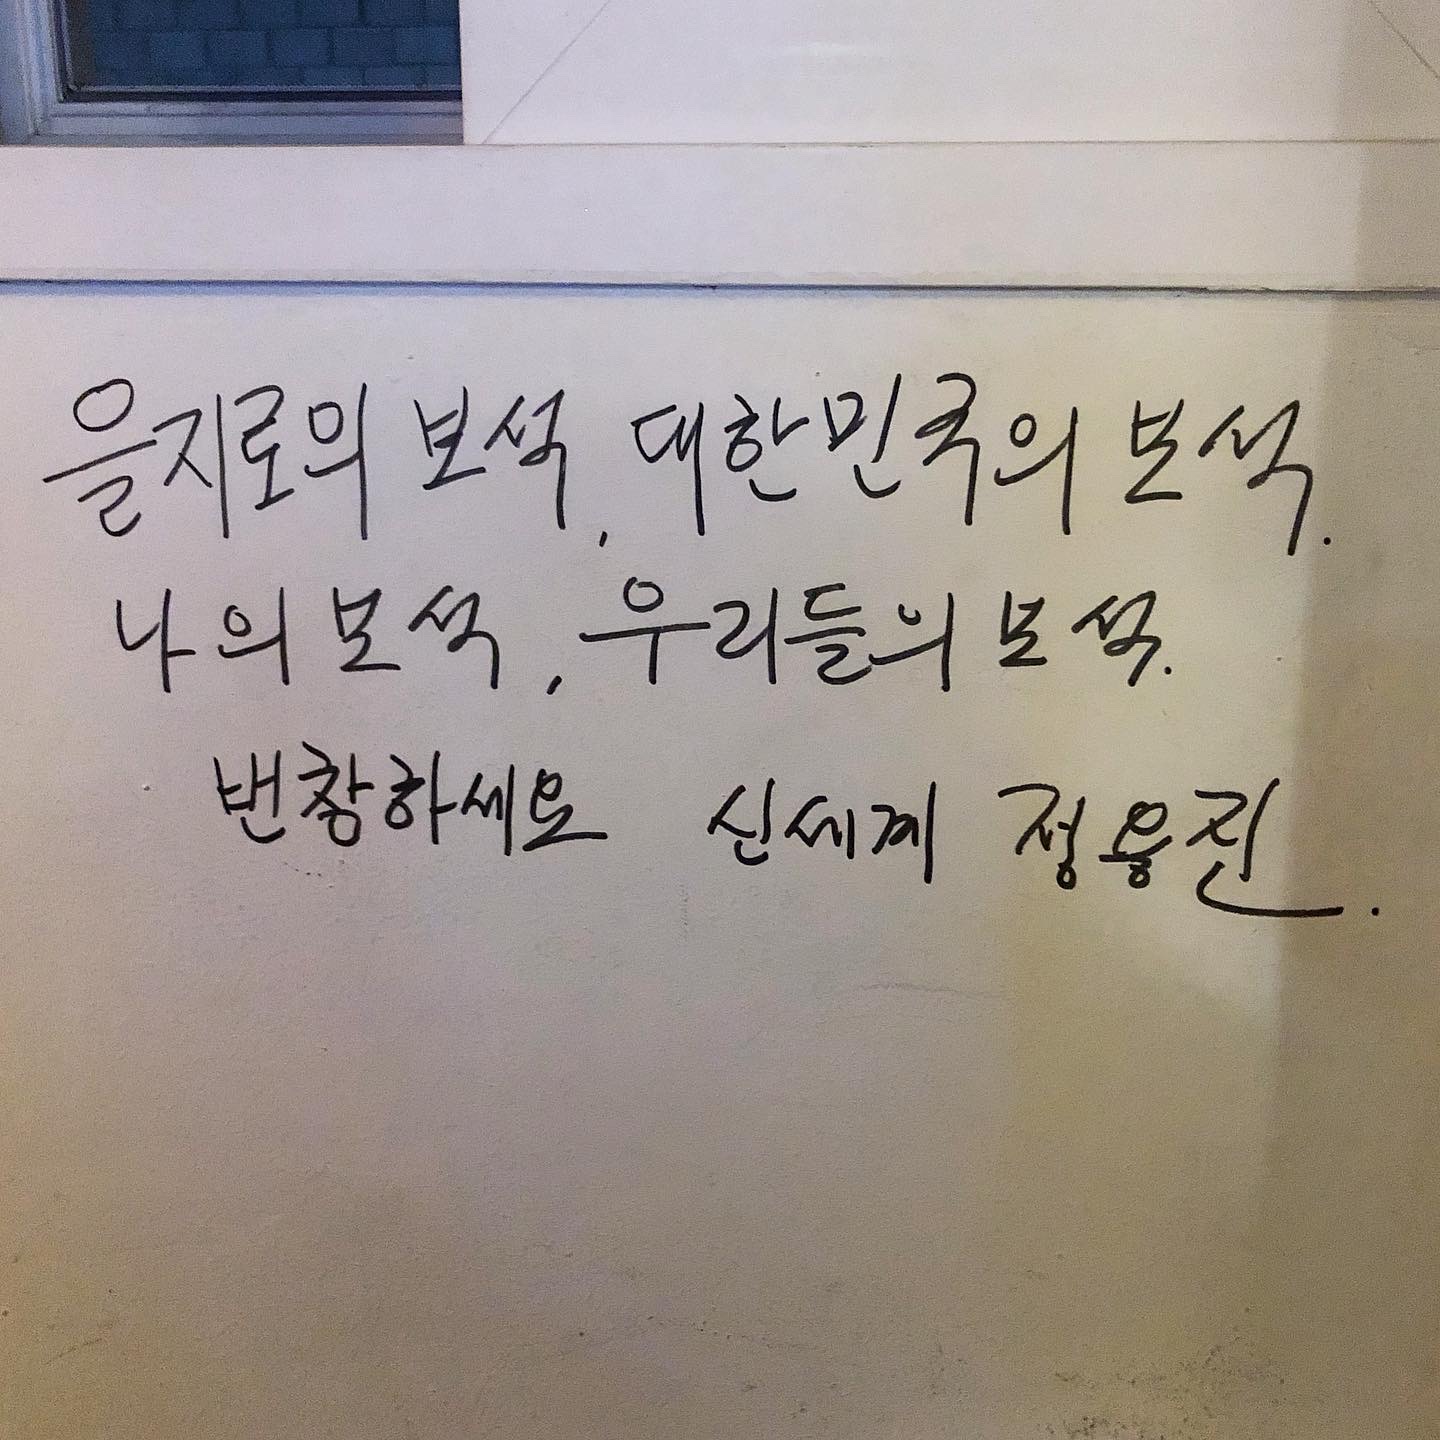 을지로의 보석, 대한민국의 보석.
나의 보석, 우리들의 보석.
번창하세요 신세계 정용진.